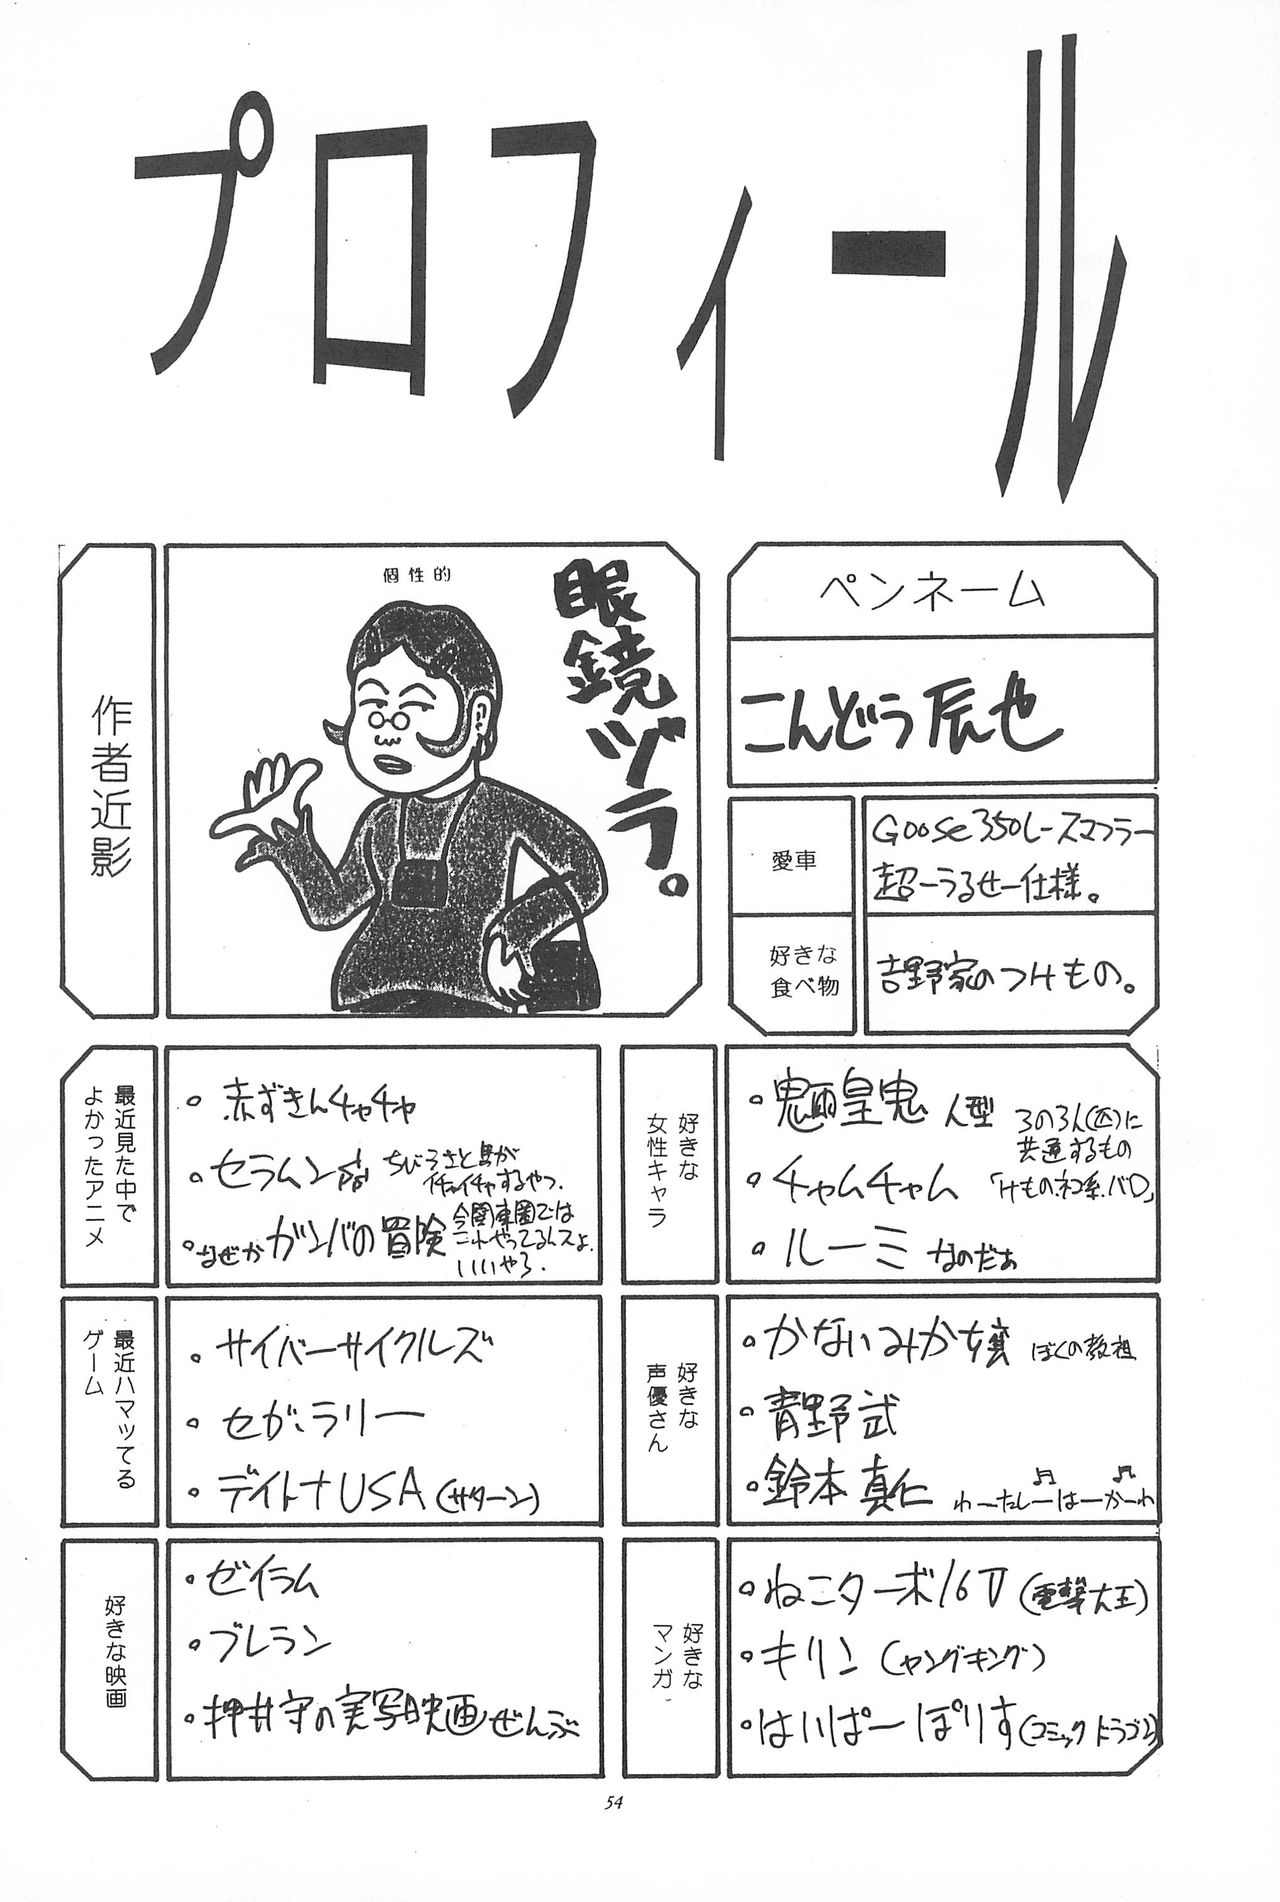 プロフィール
作者近影
個性的
眼鏡ヅラ。
ペンネーム
こんどう辰也
愛車
Goose350レースマフラー
超ーうるせー仕様。
好きな
食べ物
吉野家のつけもの。
最近見た中で
よかったアニメ
・赤ずきんチャチャ
・セラムン
ちびうさと馬が
イチャイチャするやつ。
・なぜかガンバの冒険
今関東圏では
これやってるんスよ。
いいやろ.
好きな
女性キャラ
・魎皇鬼 人型
・チャムチャム
・ルーミ なのだぁ
この3人(匹)に
共通するもの
「けもの.ネコ系.バロ」
最近ハマッてる
ゲーム
・サイバーサイクルズ
・セガ・ラリー
・デイトナUSA(サターン)
好きな
声優さん
・かないみか嬢 ぼくの教祖
・青野武
・鈴木真仁 わーたしーはーかーわ
好きな映画
・ゼイラム
・ブレラン
・押井守の実写映画ぜんぶ
好きな
マンガ
・ねこターボ16V(電撃大王)
・キリン(ヤングキング)
・はいぱーぽりす(コミックドラゴン)
54